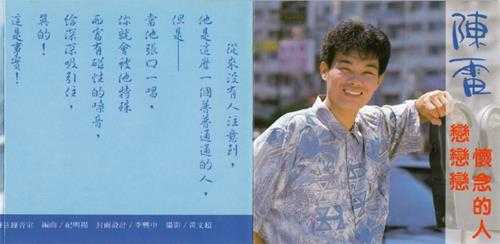 從來沒有人注意到，
他是這麼一個普普通通的人，
但是——
當他張口一唱，
你就會被他特殊
而富有磁性的嗓音，
給深深吸引住，
真的！
這是事實！
錄音室 編曲/紀明陽 封面設計/李興中 攝影/黃文超
陳雷
懷念的人
戀戀戀